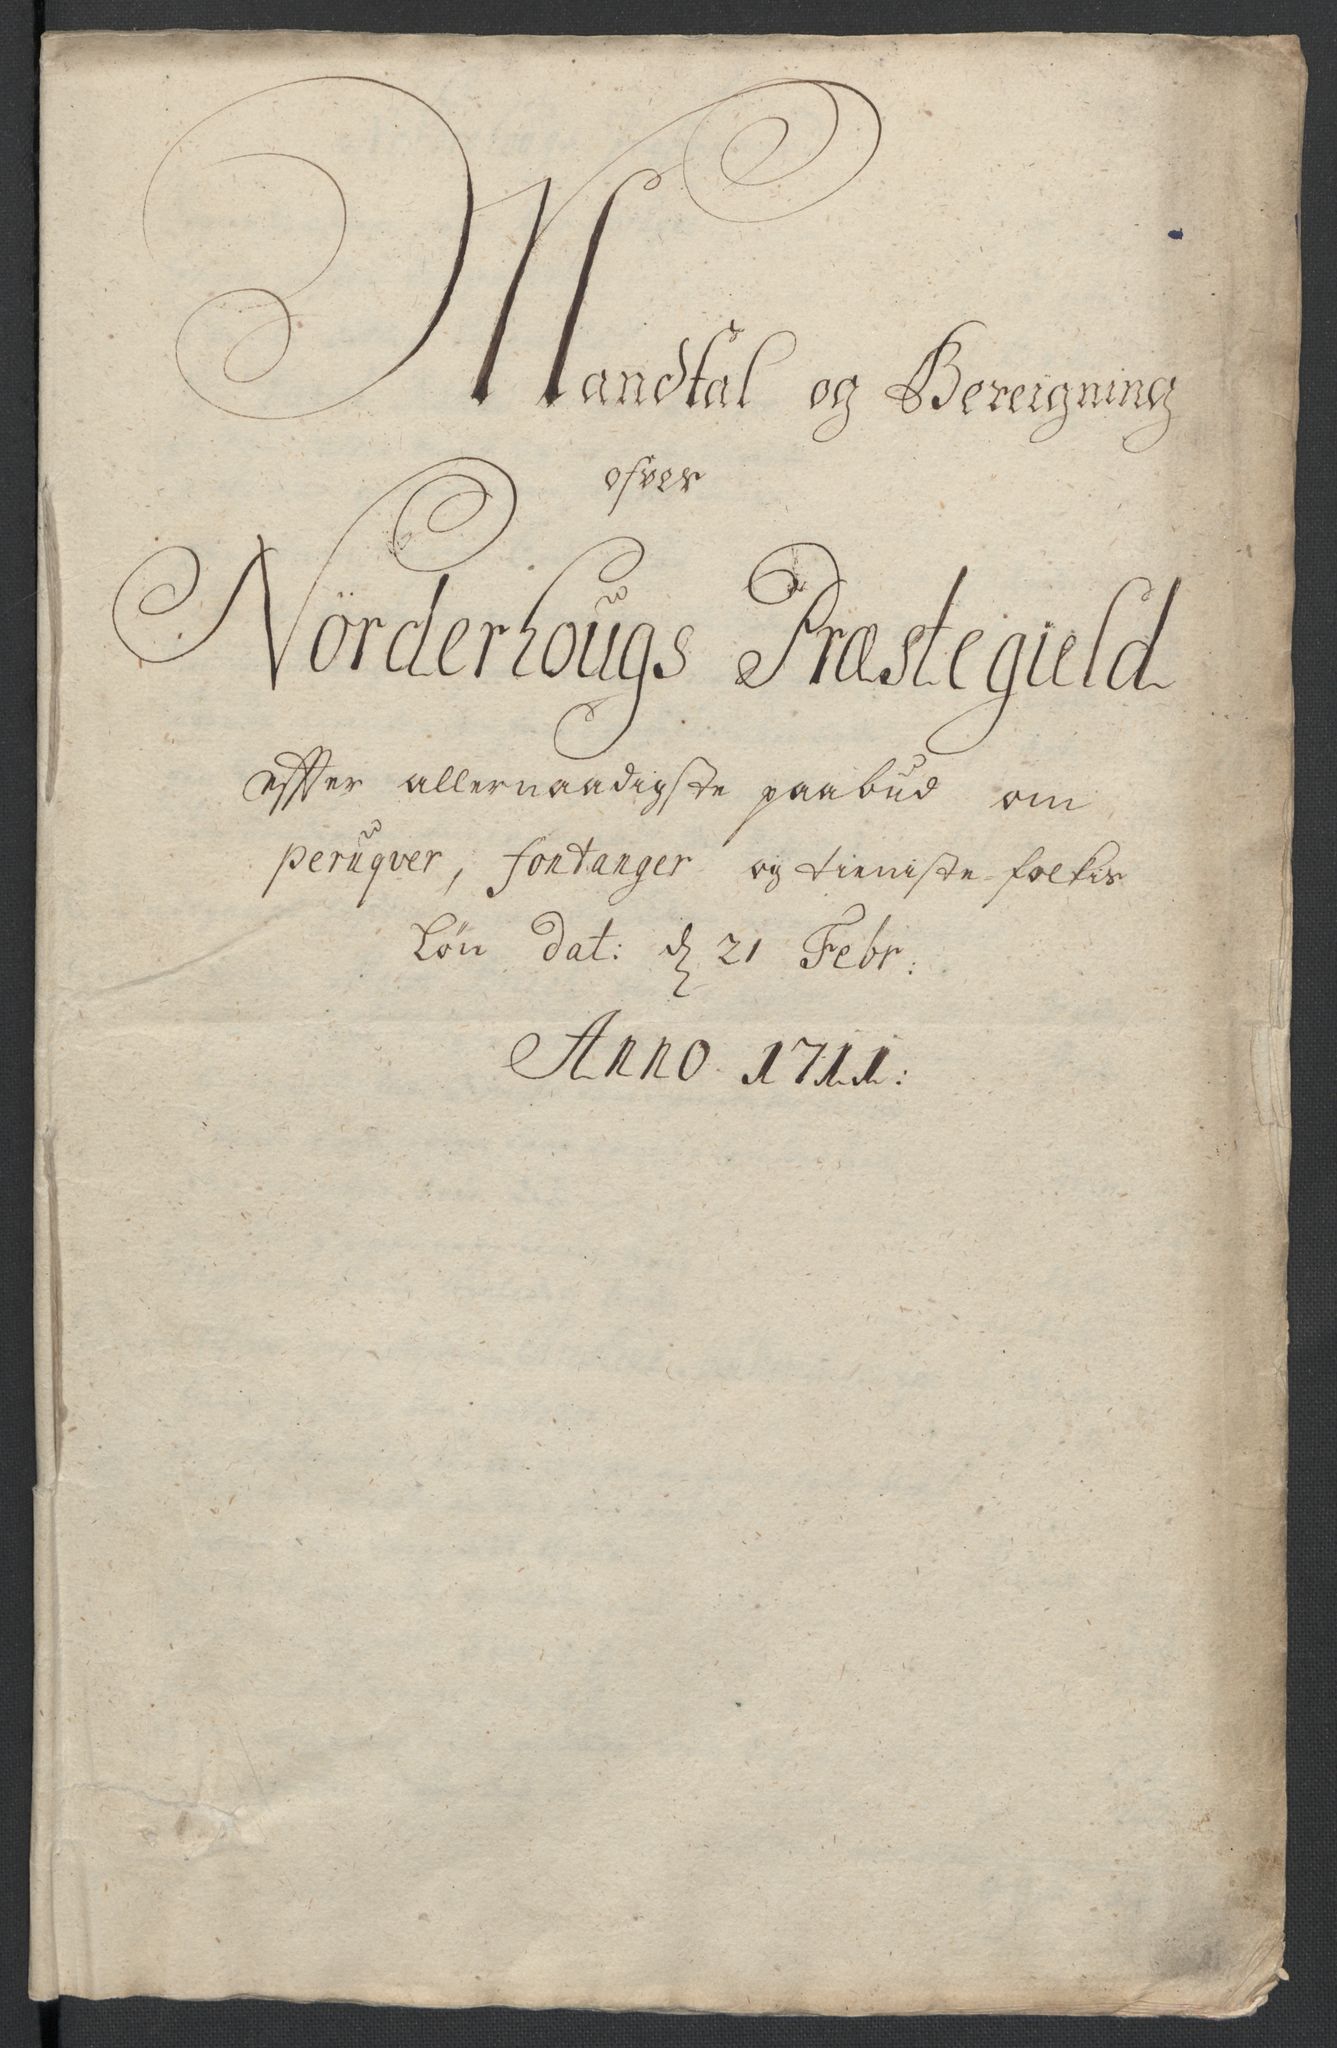 Mandtal og Bereigning
ofver
Nörderhougs Præstegield
effter allernaadigste paabud om
peruqver, fontanger og tieniste folkis
Løn dat: d 21 Febr:
Anno 1711: